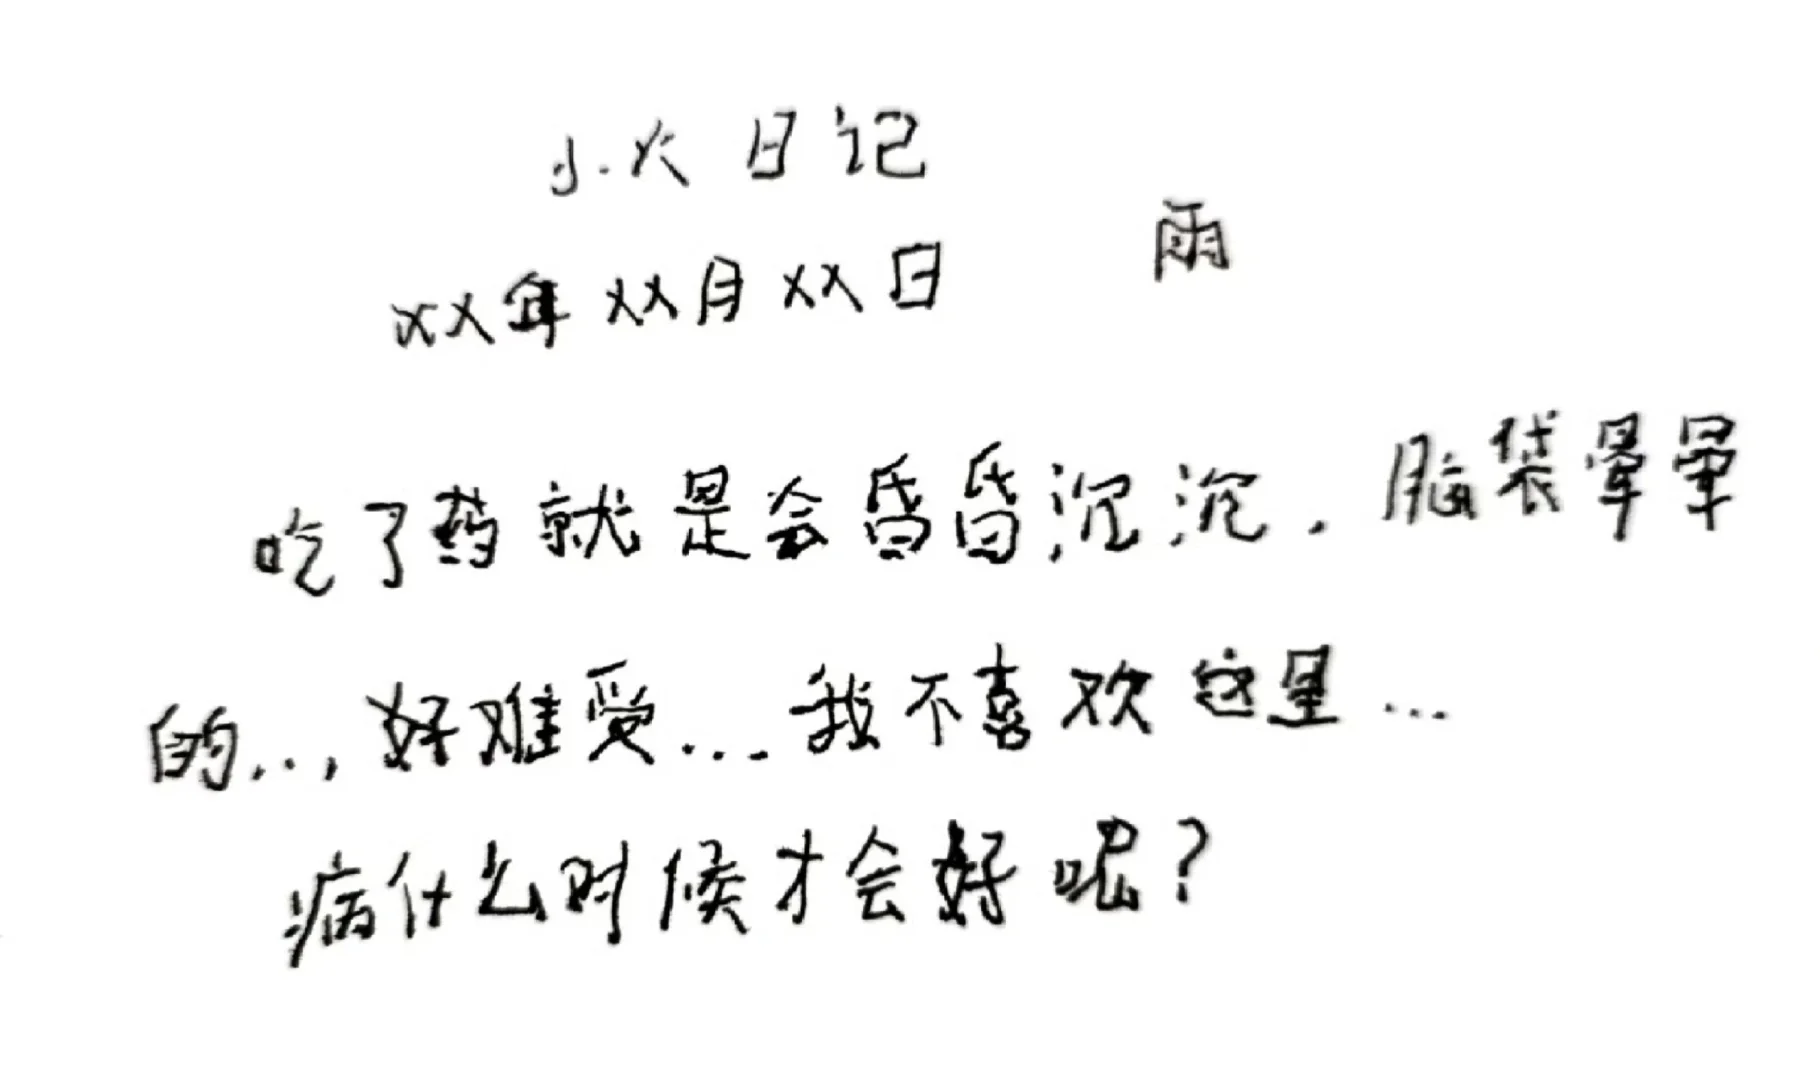 小火日记
雨
XX年XX月XX日
吃了药就是会昏昏沉沉，脑袋晕晕
的...，好难受...我不喜欢这里...
病什么时候才会好呢？